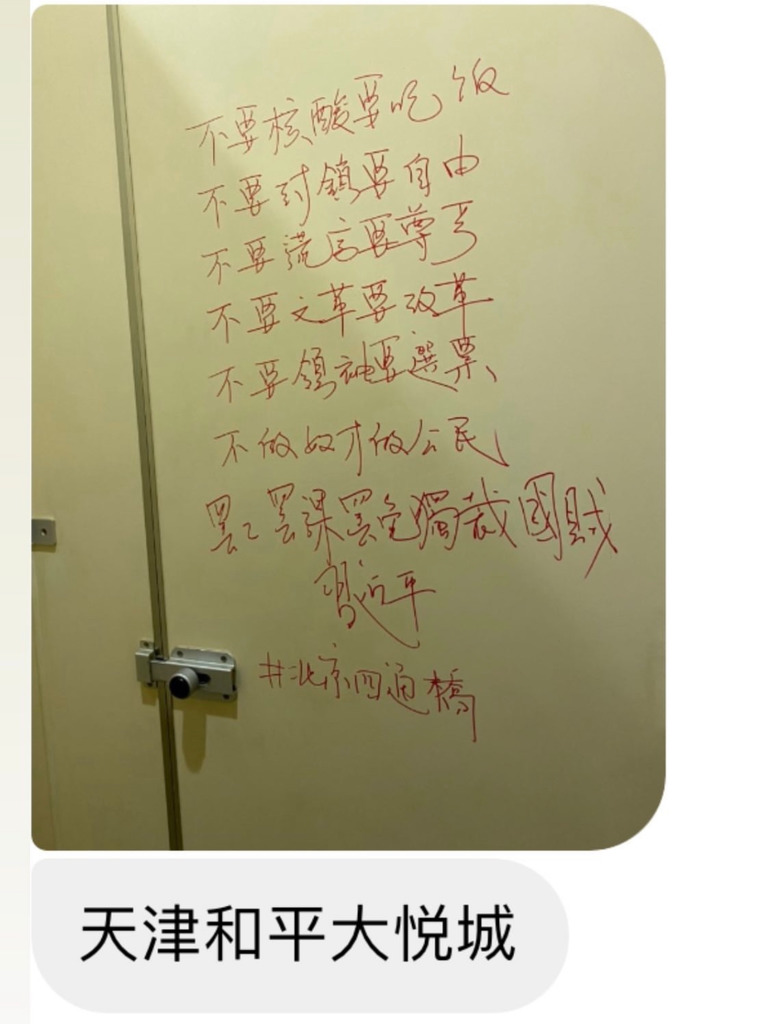 不要核酸要吃饭
不要封鎖要自由
不要謊言要尊严
不要文革要改革
不要領袖要選票
不做奴才做公民
罢工罢課罢免獨裁國賊
習近平
#北京四通橋
天津和平大悦城